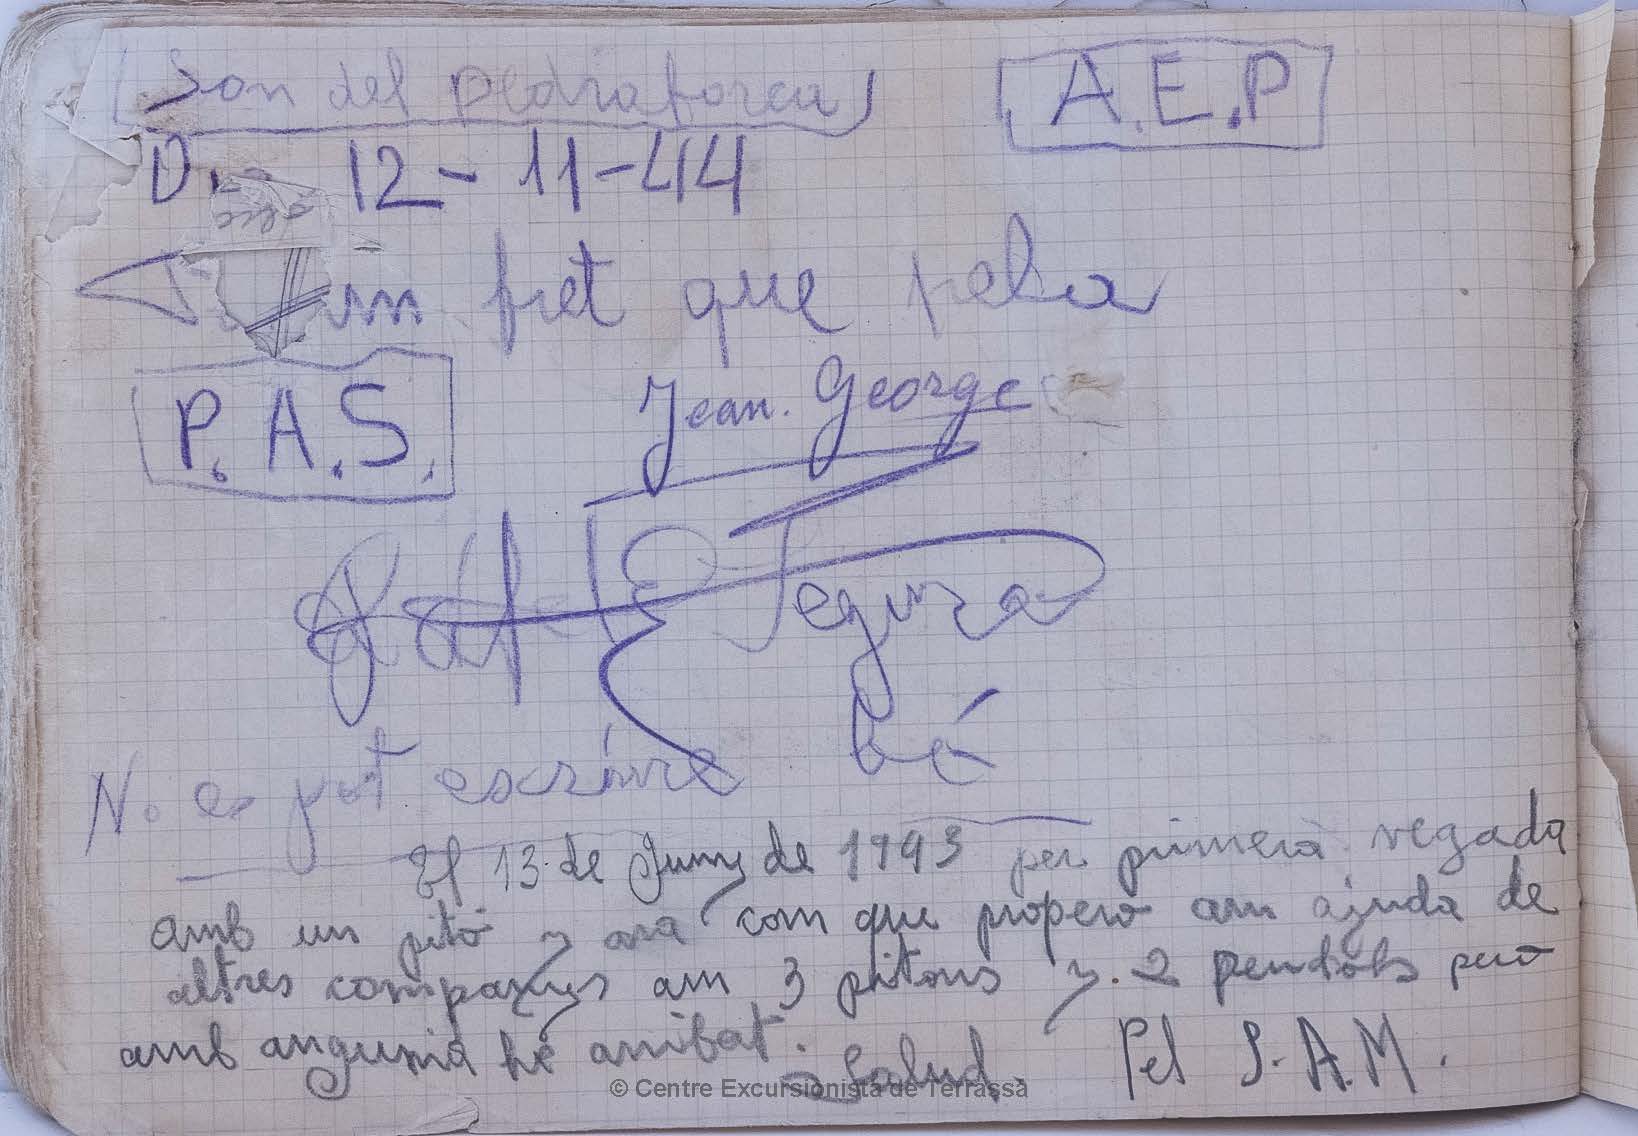 Son del Pedraforca
A.E.P
D. 12-11-44
un fret que pela
P.A.S.
Jean. George
Segura
No es pot escriure bé
El 13 de Juny de 1943 per primera vegada
amb un pitó y ara com que propero am ajuda de
altres companys am 3 pitons y. 2 però
amb angunia hé arribat.
Salud. Pel S.A.M.
© Centre Excursionista de Terrassa